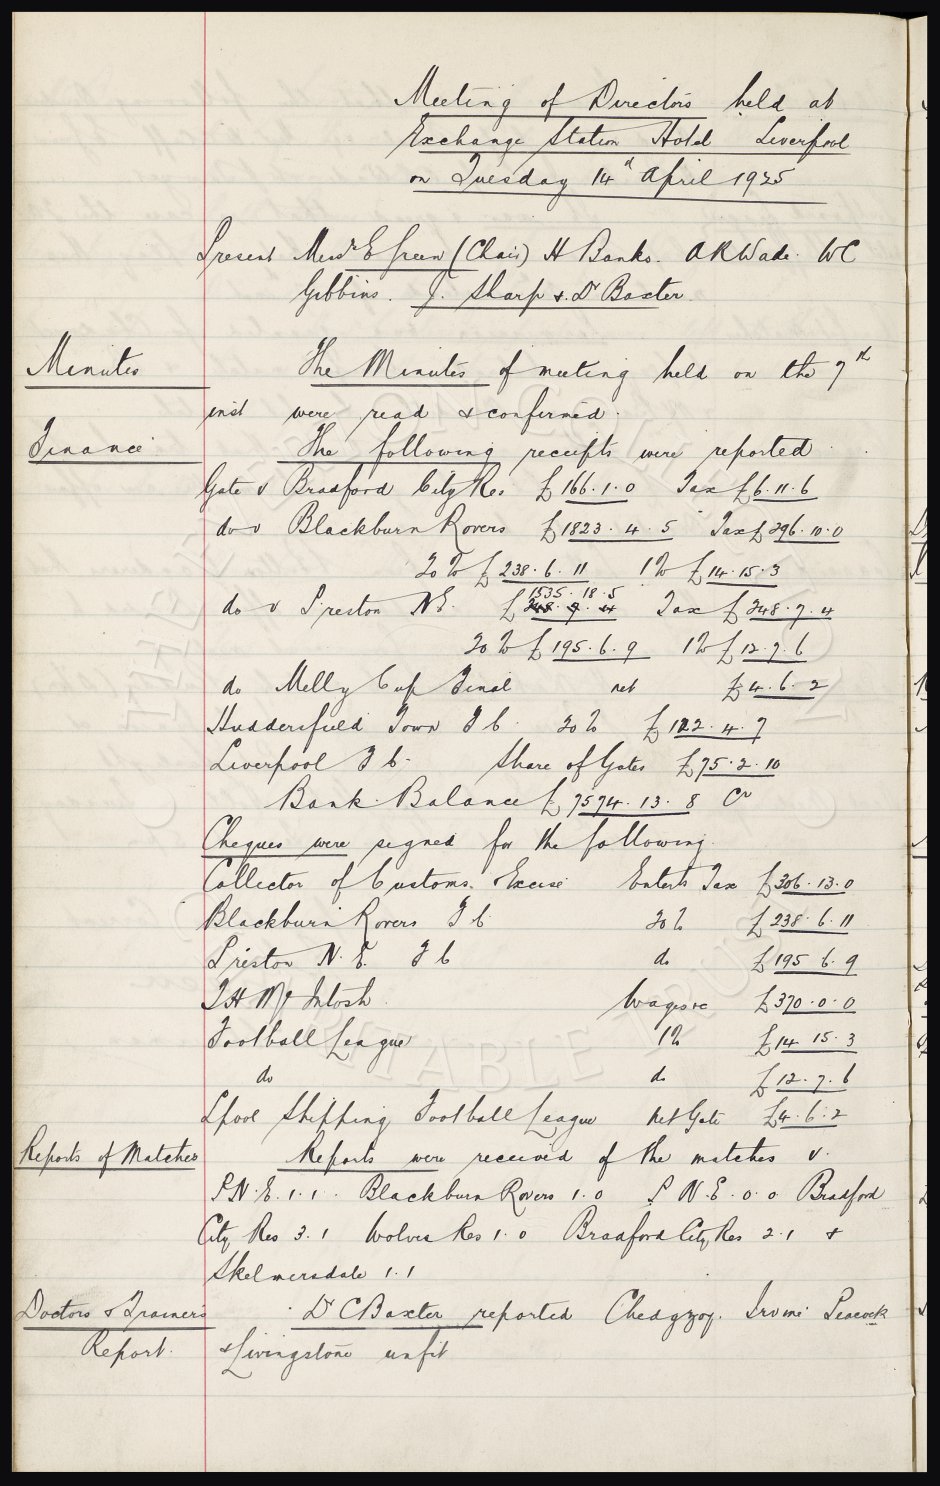 Meeting of Directors held at
Exchange Station Hotel Liverpool
on Tuesday 14th April 1925
Present Messrs E Green (Chair) H Banks. A R Wade. W C
Gibbins. J. Sharp & Dr Baxter.
Minutes The Minutes of meeting held on the 7th
inst were read & confirmed.
Finance The following receipts were reported
Gate v Bradford City Res £166.1.0 Tax £6.11.6
do v Blackburn Rovers £1823.4.5 Tax £296.10.0
20% £238.6.11 1% £14.15.3
1535.18.5
do v Preston N.E. £248.7.4 Tax £248.7.4
20% £195.6.9 1% £12.7.6
do Melly Cup Final net £4.6.2
Huddersfield Town F C. 20% £122.4.7
Liverpool F C. Share of Gates £75.2.10
Bank Balance £7574.13.8 Cr
Cheques were signed for the following.
Collector of Customs & Excise Enterts Tax £306.13.0
Blackburn Rovers F C. 20% £238.6.11
Preston N.E. F C do £195 6.9
T H McIntosh. Wages &c £370.0.0
Football League 1% £14 15.3
do do £12.7.6
Lpool Shipping Football League Net Gate £4.6.2
Reports of Matches Reports were received of the matches v.
P.N.E. 1.1. Blackburn Rovers 1.0 P N.E. 0.0 Bradford
City Res 3.1 Wolves Res 1.0 Bradford City Res 2.1 &
Skelmersdale 1.1
Doctors & Trainers Dr C Baxter reported Chedgzoy. Irvine Peacock
Report. & Livingstone unfit